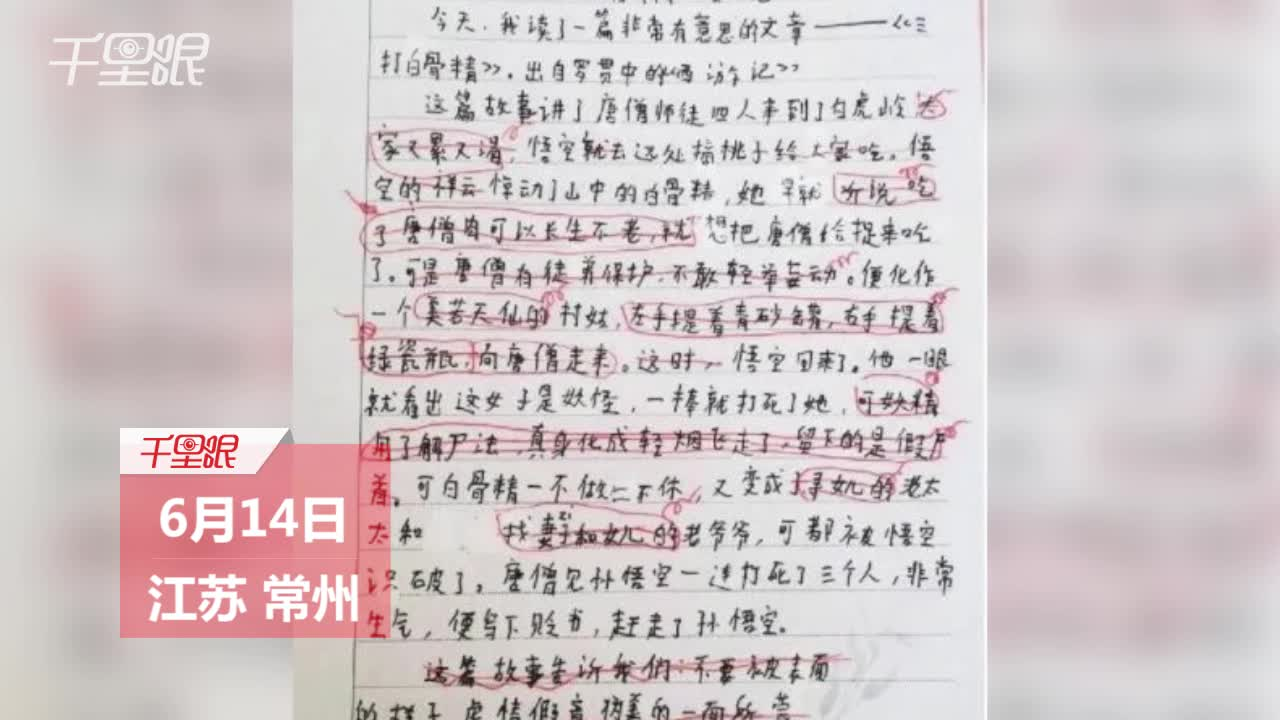 千里眼
今天，我读了一篇非常有意思的文章——《三
打白骨精》。出自罗贯中的《西游记》
这篇故事讲了唐僧师徒四人来到了白虎岭 大
家又累又渴，悟空就去远处摘桃子给大家吃。悟
空的祥云惊动了山中的白骨精，她早就听说吃
了唐僧肉可以长生不老，就想把唐僧给捉来吃
了。可是唐僧有徒弟保护，不敢轻举妄动。便化作
一个美若天仙的村姑，左手提着青砂罐，右手提着
绿瓷瓶，向唐僧走来。这时，悟空回来了。他一眼
就看出这女子是妖怪，一棒就打死了她，可妖精
用了解尸法，真身化成轻烟飞走了，留下的是假尸
首。可白骨精一不做二不休，又变成了寻女儿的老太
太和 找妻子和女儿的老爷爷，可都被悟空
识破了。唐僧见孙悟空一连打死了三个人，非常
生气，便写下贬书，赶走了孙悟空。
这篇故事告诉我们：不要被表面
的样子，虚情假意伪善的一面所
千里眼
6月14日
江苏 常州